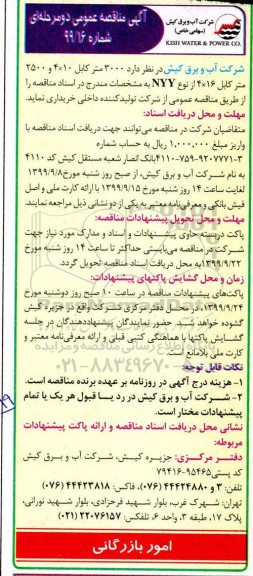 شرکت آب و برق کیش
(سهامی خاص)
KISH WATER & POWER CO.
آگهی مناقصه عمومی دومرحله‌ای
شماره ۹۹/۱۶
شرکت آب و برق کیش در نظر دارد ۳۰۰۰ متر کابل ۴x۱۰ و ۲۵۰۰
متر کابل ۴x۱۶ از نوع NYY به مشخصات مندرج در اسناد مناقصه را
از طریق مناقصه عمومی از شرکت تولیدکننده داخلی خریداری نماید.
مهلت و محل دریافت اسناد:
متقاضیان شرکت در مناقصه می‌توانند جهت دریافت اسناد مناقصه با
واریز مبلغ ۱,۰۰۰,۰۰۰ ریال به حساب شماره
۴۱۱۰-۷۵۹-۹۲۰۷۷۷۱-۳ بانک انصار شعبه مستقل کیش کد ۴۱۱۰
به نام شرکت آب و برق کیش، از صبح روز شنبه مورخ ۱۳۹۹/۹/۸
لغایت ساعت ۱۴ روز شنبه مورخ ۱۳۹۹/۹/۱۵ با ارائه کارت ملی و اصل
فیش بانکی و معرفی‌نامه معتبر به یکی از دو نشانی ذیل مراجعه نمایند.
مهلت و محل تحویل پیشنهادات مناقصه:
پاکت دربسته حاوی پیشنهادات و اسناد و مدارک مورد نیاز جهت
شرکت در مناقصه می‌بایستی حداکثر تا ساعت ۱۴ روز شنبه مورخ
۱۳۹۹/۹/۲۲ به محل دریافت اسناد مناقصه تحویل گردد.
زمان و محل گشایش پاکتهای پیشنهادات:
پاکت‌های پیشنهادات مناقصه در ساعت ۱۰ صبح روز دوشنبه مورخ
۱۳۹۹/۹/۲۴، در محل دفتر مرکزی شرکت واقع در جزیره کیش
گشوده خواهد شد. حضور نمایندگان پیشنهاددهندگان در جلسه
گشایش پاکتها با هماهنگی کتبی قبلی و ارائه معرفی‌نامه معتبر و
کارت ملی بلامانع است.
۰۲۱-۸۸۳۴۹۶۷۰
نکات قابل توجه:
۱- هزینه درج آگهی در روزنامه بر عهده برنده مناقصه است.
۲- شرکت آب و برق کیش در رد یا قبول هر یک یا تمام
پیشنهادات مختار است.
نشانی محل دریافت اسناد مناقصه و ارائه پاکت پیشنهادات
مربوطه:
دفتر مرکزی: جزیره کیش، شرکت آب و برق کیش
کد پستی ۹۵۴۶۵-۷۹۴۱۶
تلفن: ۳ و ۴۴۴۲۴۸۸۰ (۰۷۶)، فاکس: ۴۴۴۲۳۸۱۸ (۰۷۶)
تهران: شهرک غرب، بلوار شهید فرحزادی، بلوار شهید نورانی،
پلاک ۱۷، طبقه ۳، واحد ۶، تلفکس: ۲۲۰۷۶۱۵۷ (۰۲۱)
امور بازرگانی